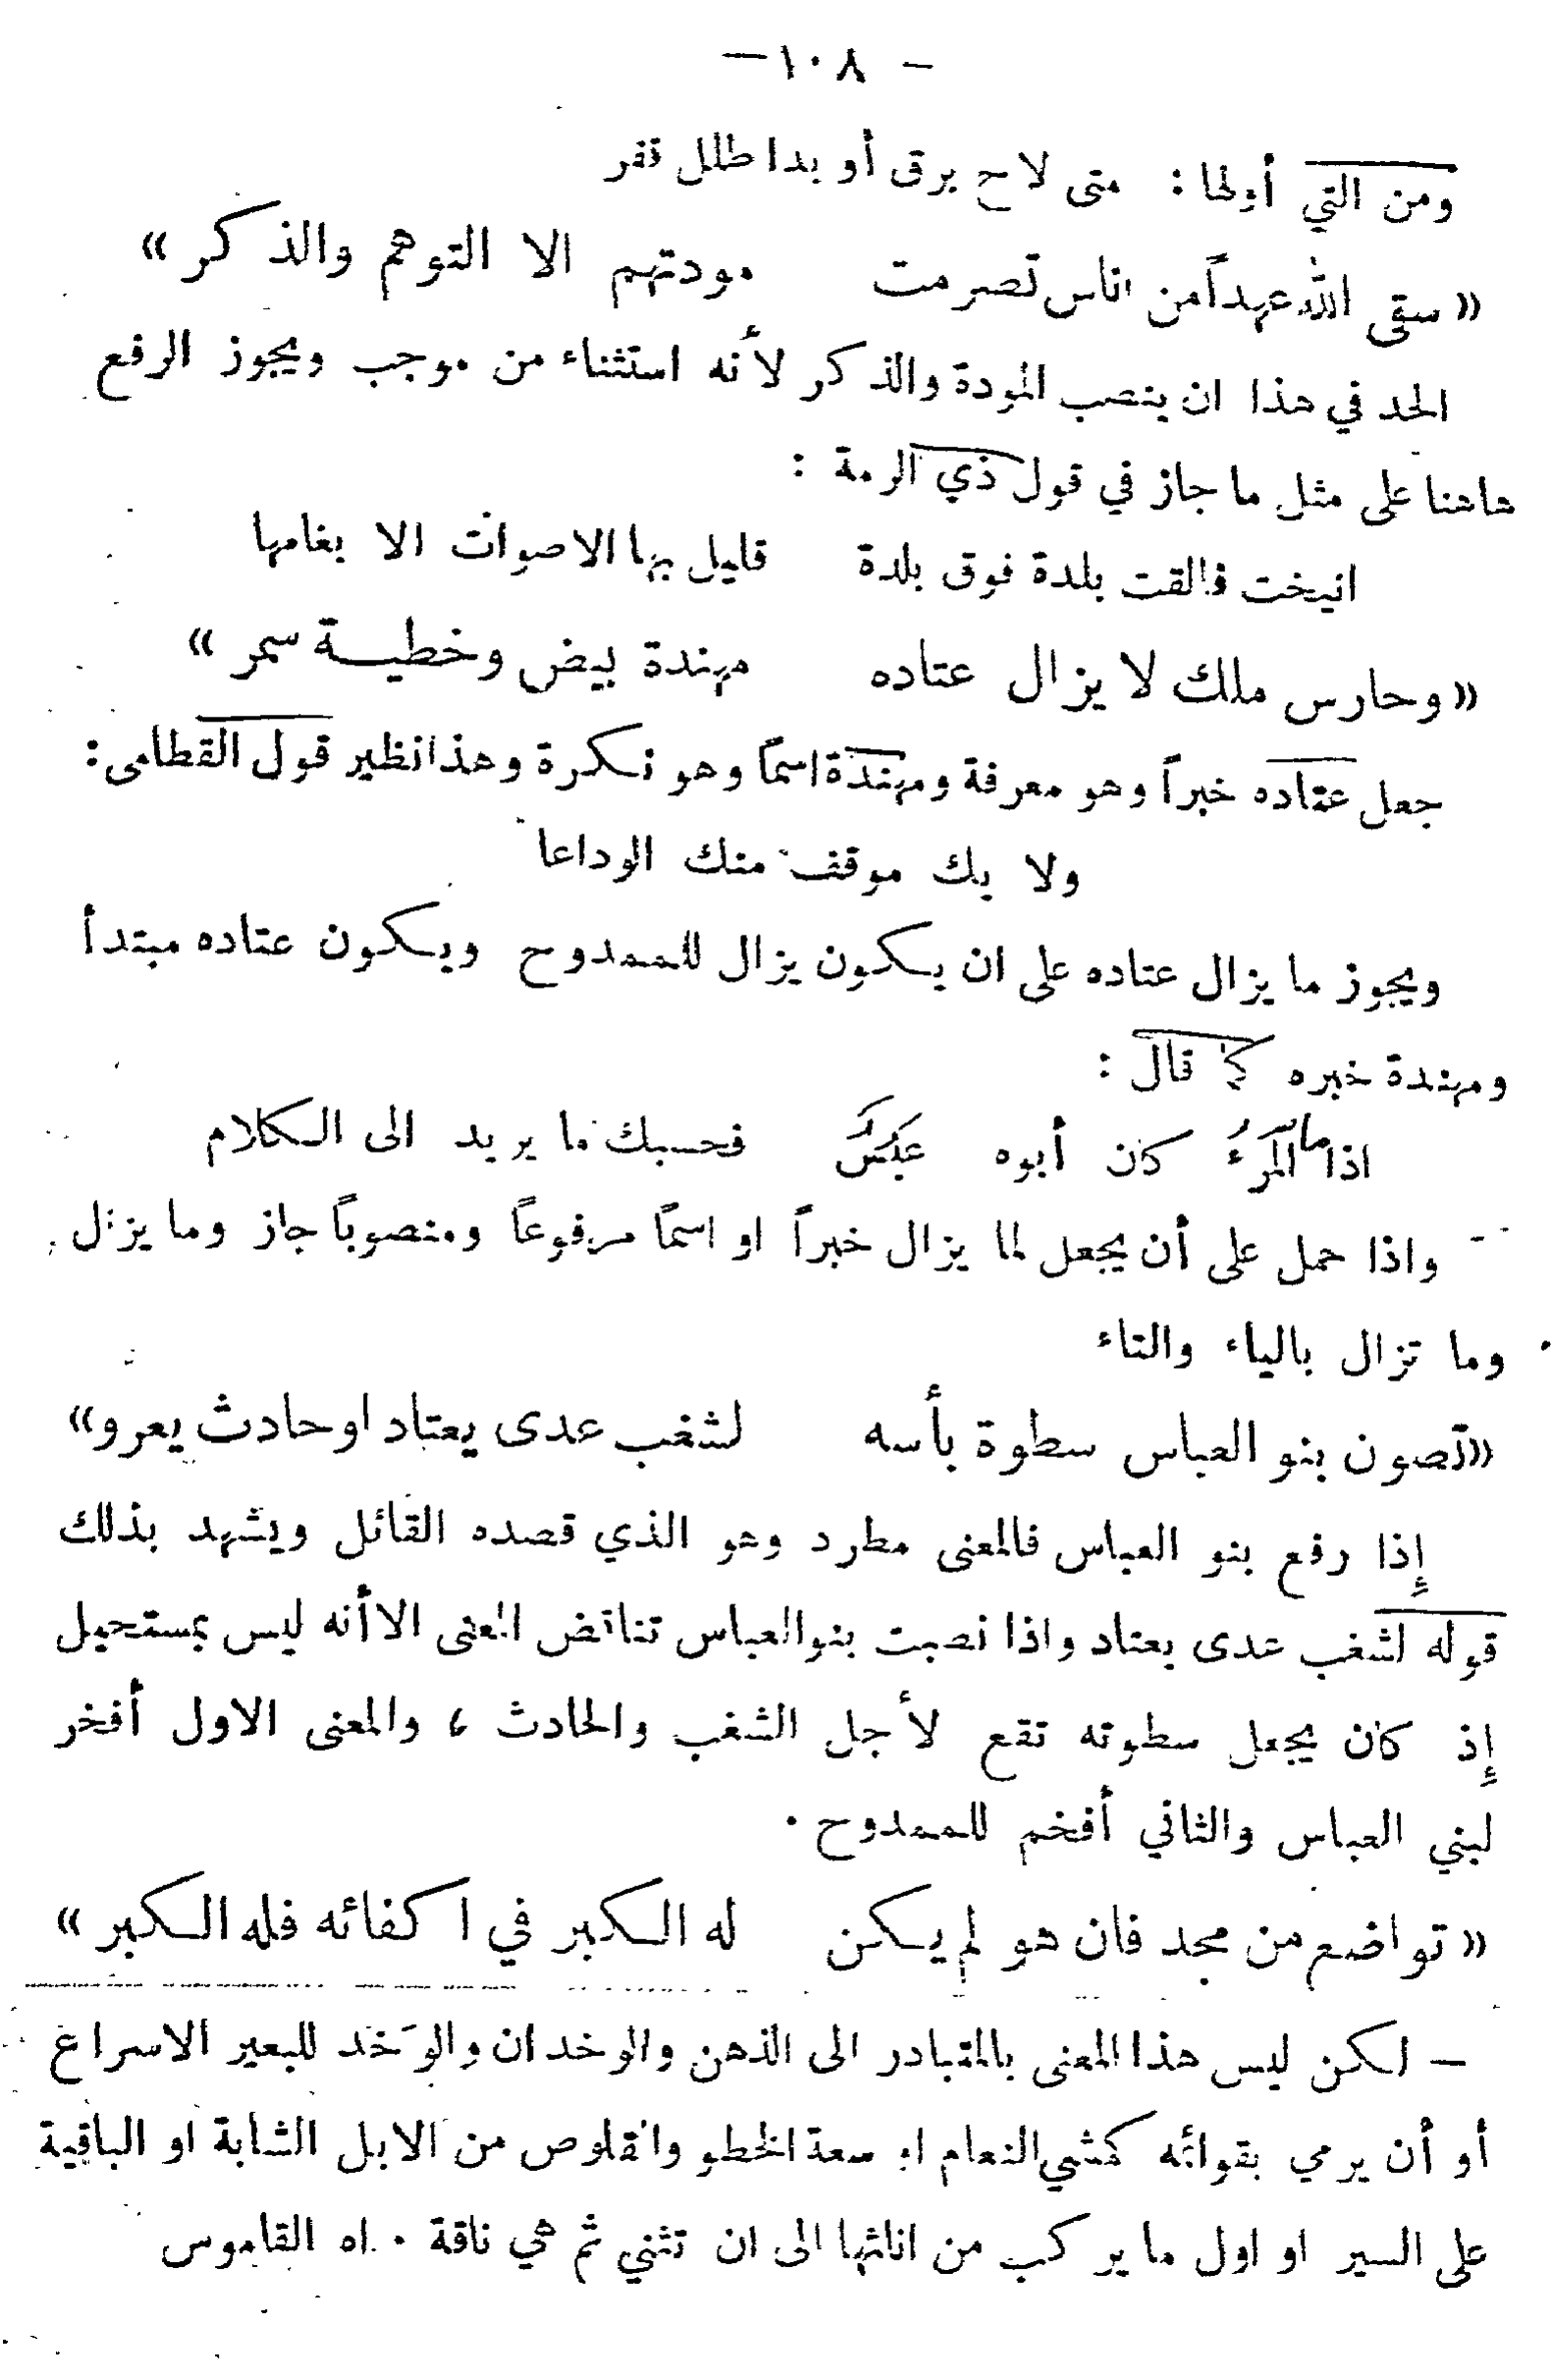 — ١٠٨ —
ومن التي أولها : متى لاح برق أو بدا طلل قفر
« سقى الله عهداً من اناس تصرمت مودتهم الا التوهم والذكر »
الحد في هذا ان ينصب المودة والذكر لأنه استثناء من موجب ويجوز الرفع
هاهنا على مثل ما جاز في قول ذي الرمة :
انيخت فالقت بلدة فوق بلدة قليل بها الاصوات الا بغامها
« وحارس ملك لا يزال عتاده مهندة بيض وخطيــة سمر »
جعل عتاده خبراً وهو معرفة ومهندة اسماً وهو نكرة وهذا نظير قول القطامى :
ولا يك موقف منك الوداعا
ويجوز ما يزال عتاده على ان يكون يزال للممدوح ويكون عتاده مبتدأ
ومهندة خبره كما قال :
اذا ما المرءُ كان أبوه عَبْسٌ فحسبك ما يريد الى الكلام
واذا حمل على أن يجعل لما يزال خبراً او اسماً مرفوعاً ومنصوباً جاز وما يزال
وما تزال بالياء والتاء
« تصون بنو العباس سطوة بأسه لشغب عدى يعتاد او حادث يعرو »
إِذا رفع بنو العباس فالمعنى مطرد وهو الذي قصده القائل ويشهد بذلك
قوله لشغب عدى يعتاد واذا نصبت بنو العباس تناقض المعنى الا أنه ليس بمستحيل
إِذ كان يجعل سطوته تقع لأجل الشغب والحادث ، والمعنى الاول أفخر
لبني العباس والثاني أفخم للممدوح .
« تواضع من مجد فان هو لم يكن له الكبر في اكفائه فله الكبر »
— لكن ليس هذا المعنى بالمتبادر الى الذهن والوخدان والوَخد للبعير الاسراع
أو أن يرمي بقوائمه كمشي النعام او سعة الخطو والقلوص من الابل الشابة او الباقية
على السير او اول ما يركب من اناثها الى ان تثني ثم هي ناقة . اه القاموس